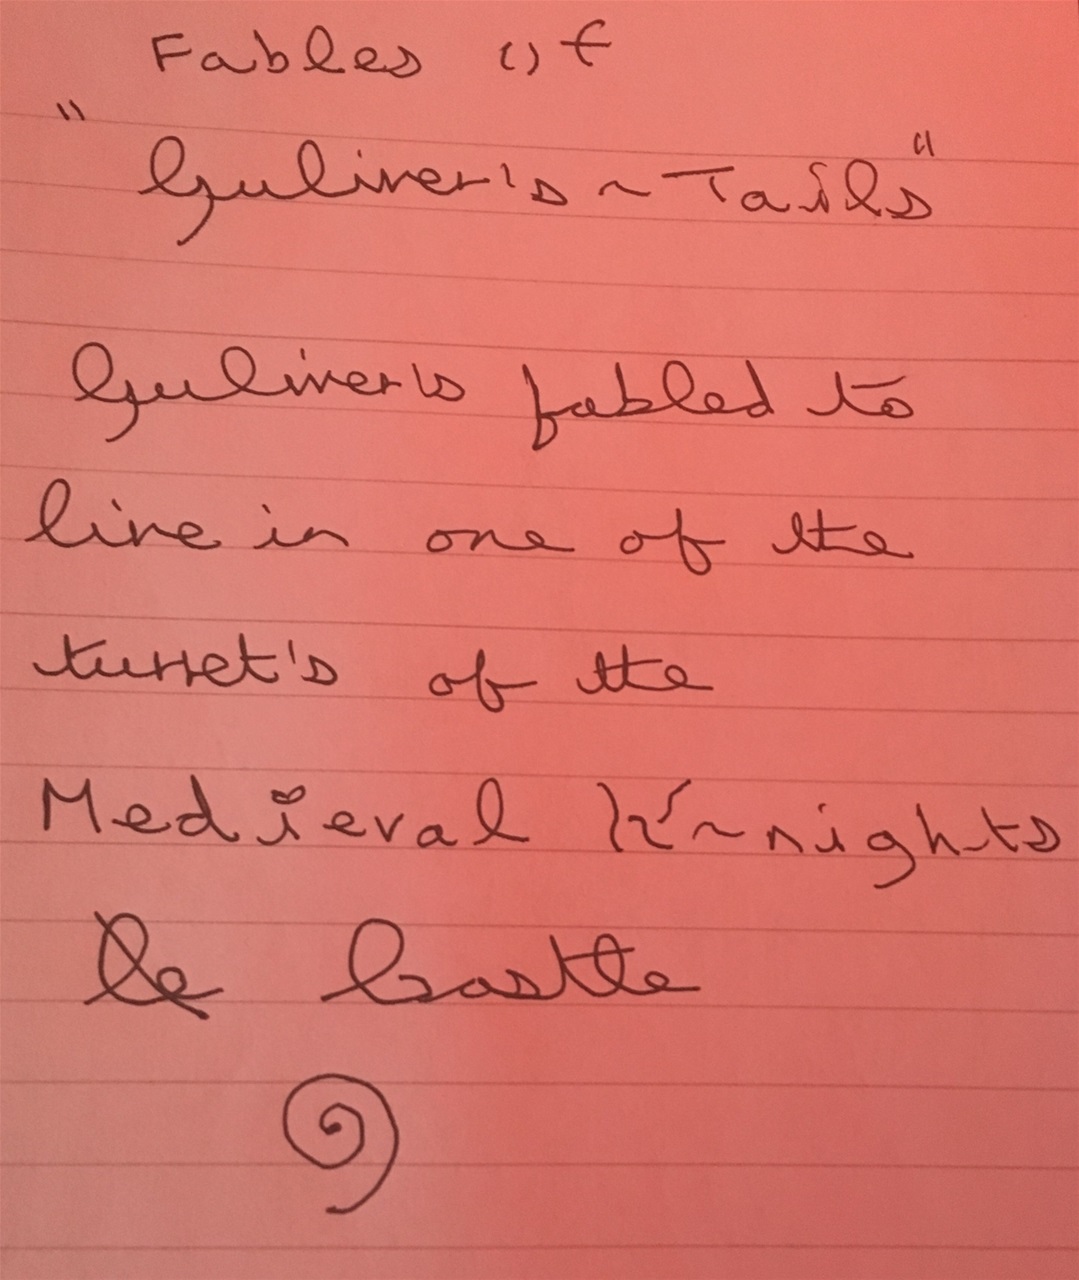 Fables of
"Guliver's ~ Tails"
Guliver's fabled to
live in one of the
turret's of the
Medieval K~nights
Castle